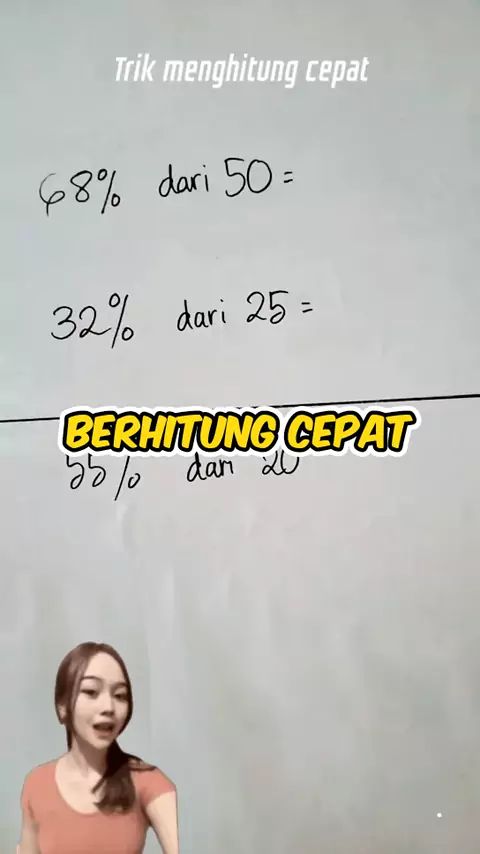 Trik menghitung cepat
68% dari 50 =
32% dari 25 =
BERHITUNG CEPAT
55% dari 20